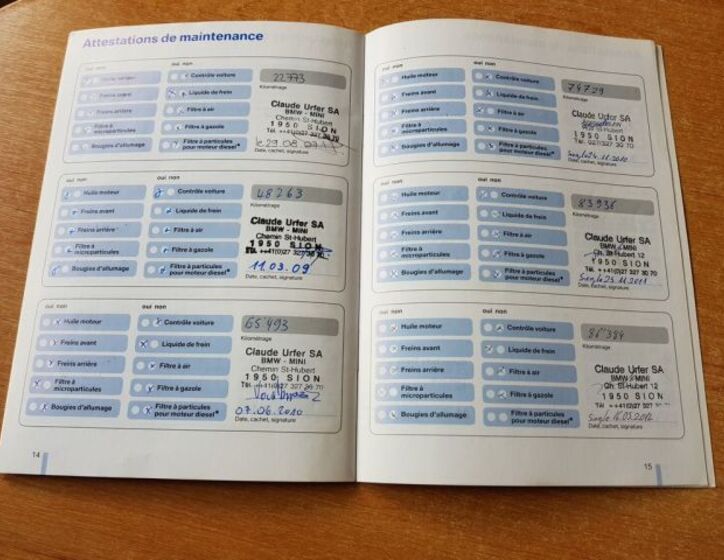 Attestations de maintenance
oui non
oui non
Huile moteur
Contrôle voiture
22773
Freins avant
Liquide de frein
Kilométrage
Freins arrière
Filtre à air
Claude Urfer SA
BMW - MINI
Chemin St-Hubert
1950 SION
Filtre à
microparticules
Filtre à gazole
Tél. ++41(0)27 327 30 70
Bougies d'allumage
Filtre à particules
pour moteur diesel*
Date, cachet, signature
oui non
oui non
Huile moteur
Contrôle voiture
48263
Freins avant
Liquide de frein
Kilométrage
Freins arrière
Filtre à air
Claude Urfer SA
BMW - MINI
Chemin St-Hubert
1950 SION
Filtre à
microparticules
Filtre à gazole
Bougies d'allumage
Filtre à particules
pour moteur diesel*
11.03.09
Date, cachet, signature
oui non
oui non
Huile moteur
Contrôle voiture
65493
Freins avant
Liquide de frein
Kilométrage
Freins arrière
Filtre à air
Claude Urfer SA
BMW - MINI
Chemin St-Hubert
1950 SION
Filtre à
microparticules
Filtre à gazole
Bougies d'allumage
Filtre à particules
pour moteur diesel*
07.06.2010
Date, cachet, signature
14
oui non
oui non
Huile moteur
Contrôle voiture
74729
Freins avant
Liquide de frein
Kilométrage
Freins arrière
Filtre à air
Claude Urfer SA
1950 SION
Filtre à
microparticules
Filtre à gazole
Tél. 027/327 30 70
Bougies d'allumage
Filtre à particules
pour moteur diesel*
24.11.2010
Date, cachet, signature
oui non
oui non
Huile moteur
Contrôle voiture
83936
Freins avant
Liquide de frein
Kilométrage
Freins arrière
Filtre à air
Claude Urfer SA
BMW - MINI
Ch. St-Hubert 12
1950 SION
Filtre à
microparticules
Filtre à gazole
Tél. ++41(0)27 327 30 70
Bougies d'allumage
Filtre à particules
pour moteur diesel*
25.11.2011
Date, cachet, signature
oui non
oui non
Huile moteur
Contrôle voiture
86384
Freins avant
Liquide de frein
Kilométrage
Freins arrière
Filtre à air
Claude Urfer SA
BMW - MINI
Ch. St-Hubert 12
1950 SION
Filtre à
microparticules
Filtre à gazole
Bougies d'allumage
Filtre à particules
pour moteur diesel*
Date, cachet, signature
15